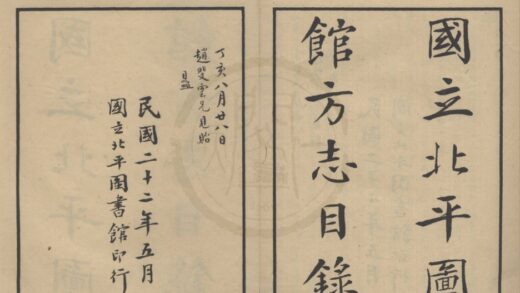 國立北平圖
館方志目錄
丁亥八月廿八日
趙斐雲兄惠貽
民國二十二年五月
國立北平图書館印行